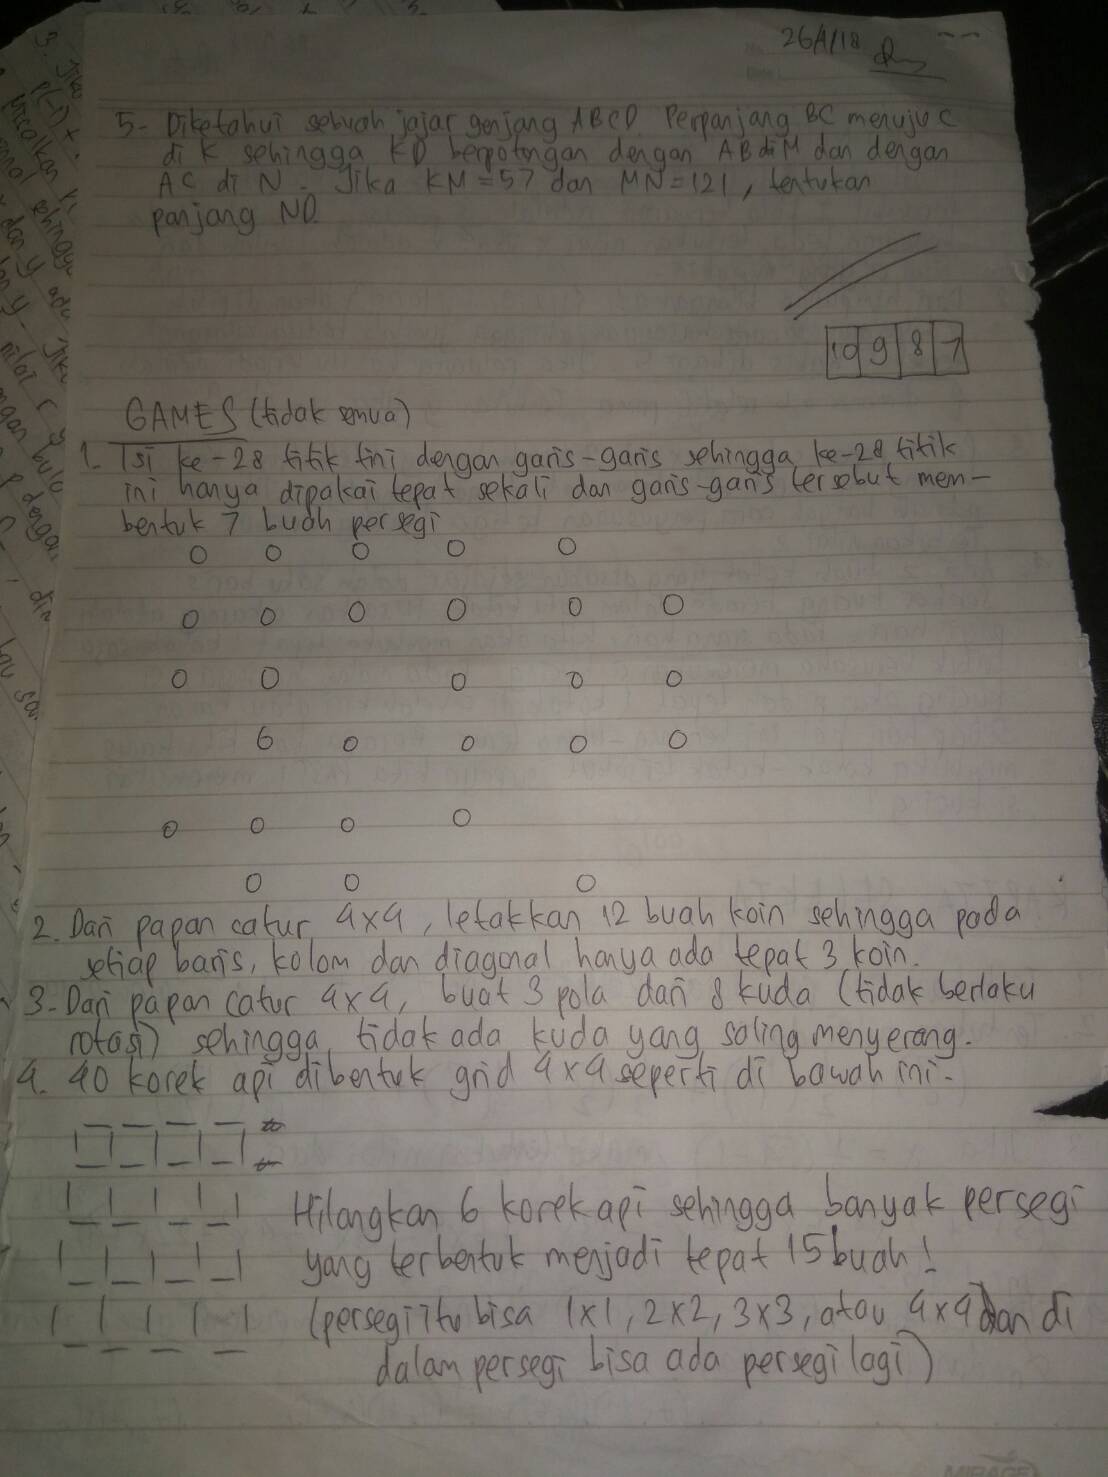 26/4/18
5. Diketahui sebuah jajar genjang ABCD. Perpanjang BC menuju C
di K sehingga KD berpotongan dengan AB di M dan dengan
AC di N. Jika KM = 57 dan MN = 121, tentukan
panjang ND.
10 9 8 7
GAMES (tidak semua)
1. Isi ke-28 titik ini dengan garis-garis sehingga ke-28 titik
ini hanya dipakai tepat sekali dan garis-garis tersebut mem-
bentuk 7 buah persegi
2. Dari papan catur 4x4, letakkan 12 buah koin sehingga pada
setiap baris, kolom dan diagonal hanya ada tepat 3 koin.
3. Dari papan catur 4x4, buat 3 pola dari 8 kuda (tidak berlaku
rotasi) sehingga tidak ada kuda yang saling menyerang.
4. 40 korek api dibentuk grid 4x4 seperti di bawah ini.
Hilangkan 6 korek api sehingga banyak persegi
yang terbentuk menjadi tepat 15 buah!
(persegi itu bisa 1x1, 2x2, 3x3, atau 4x4 dan di
dalam persegi bisa ada persegi lagi)